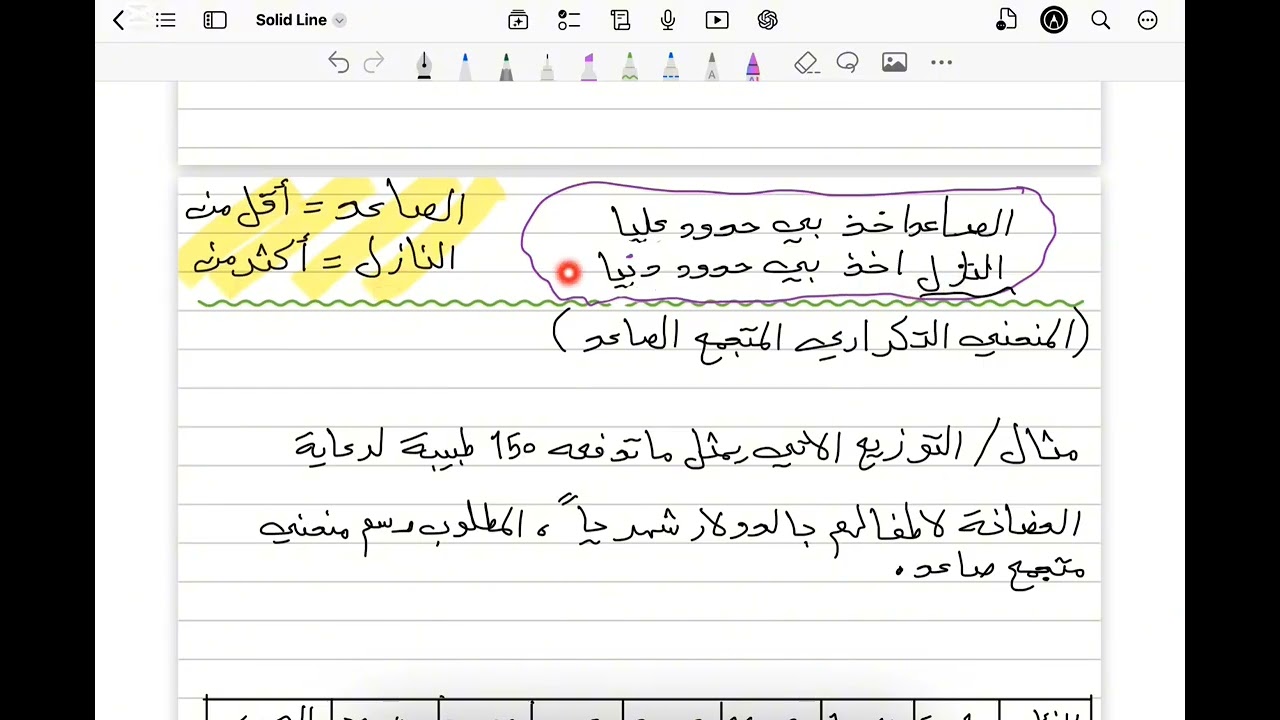 Solid Line
الصاعد اخذ بي حدود عليا
النازل اخذ بي حدود دنيا
الصاعد = أقل من
النازل = أكثر من
(المنحني التكراري المتجمع الصاعد)
مثال / التوزيع الاتي يمثل ما توفعه 150 طبيبة لدعاية
الحضانة لاطفالهم بالدولار شهرياً ، المطلوب رسم منحني
متجمع صاعد .